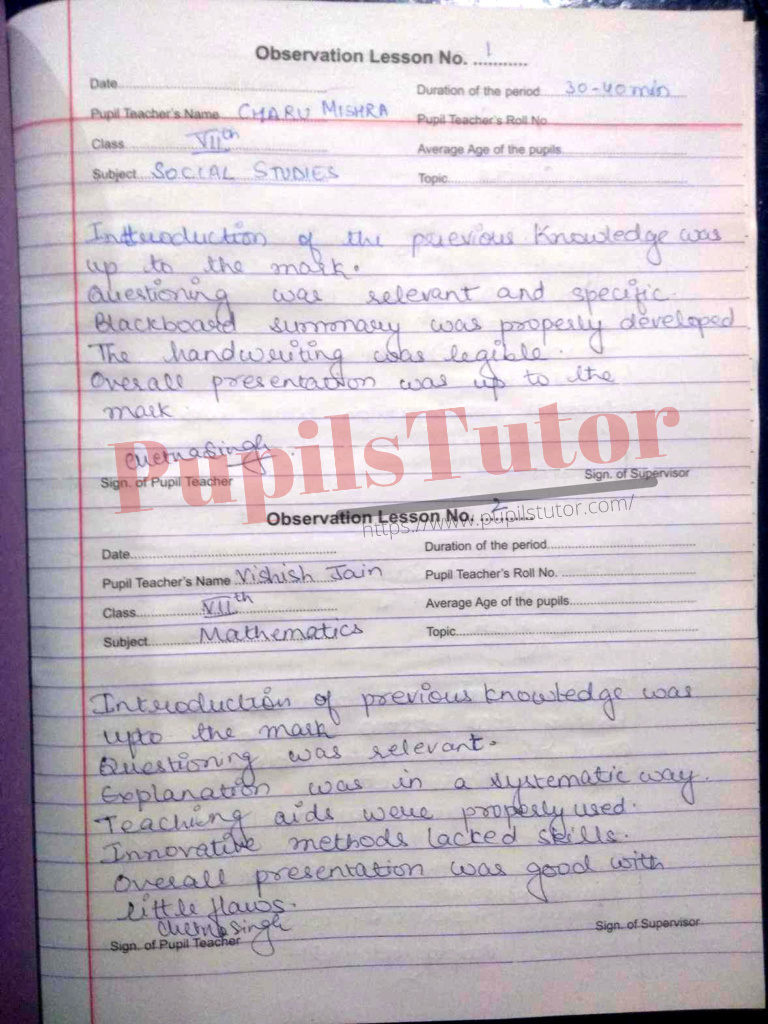 Observation Lesson No. 1
Date
Duration of the period 30-40 min
Pupil Teacher's Name CHARU MISHRA
Pupil Teacher's Roll No
Class VIIth
Average Age of the pupils
Subject SOCIAL STUDIES
Topic
Introduction of the previous Knowledge was
up to the mark.
Questioning was relevant and specific.
Blackboard summary was properly developed
The handwriting was legible.
Overall presentation was up to the
mark.
PupilsTutor
https://www.pupilstutor.com/
Sign. of Pupil Teacher
Sign. of Supervisor
Observation Lesson No. 2
Date
Duration of the period
Pupil Teacher's Name Vishish Jain
Pupil Teacher's Roll No.
Class VIIth
Average Age of the pupils
Subject Mathematics
Topic
Introduction of previous knowledge was
upto the mark
Questioning was relevant.
Explanation was in a systematic way.
Teaching aids were properly used.
Innovative methods lacked skills.
Overall presentation was good with
little flaws.
Sign. of Pupil Teacher
Sign. of Supervisor